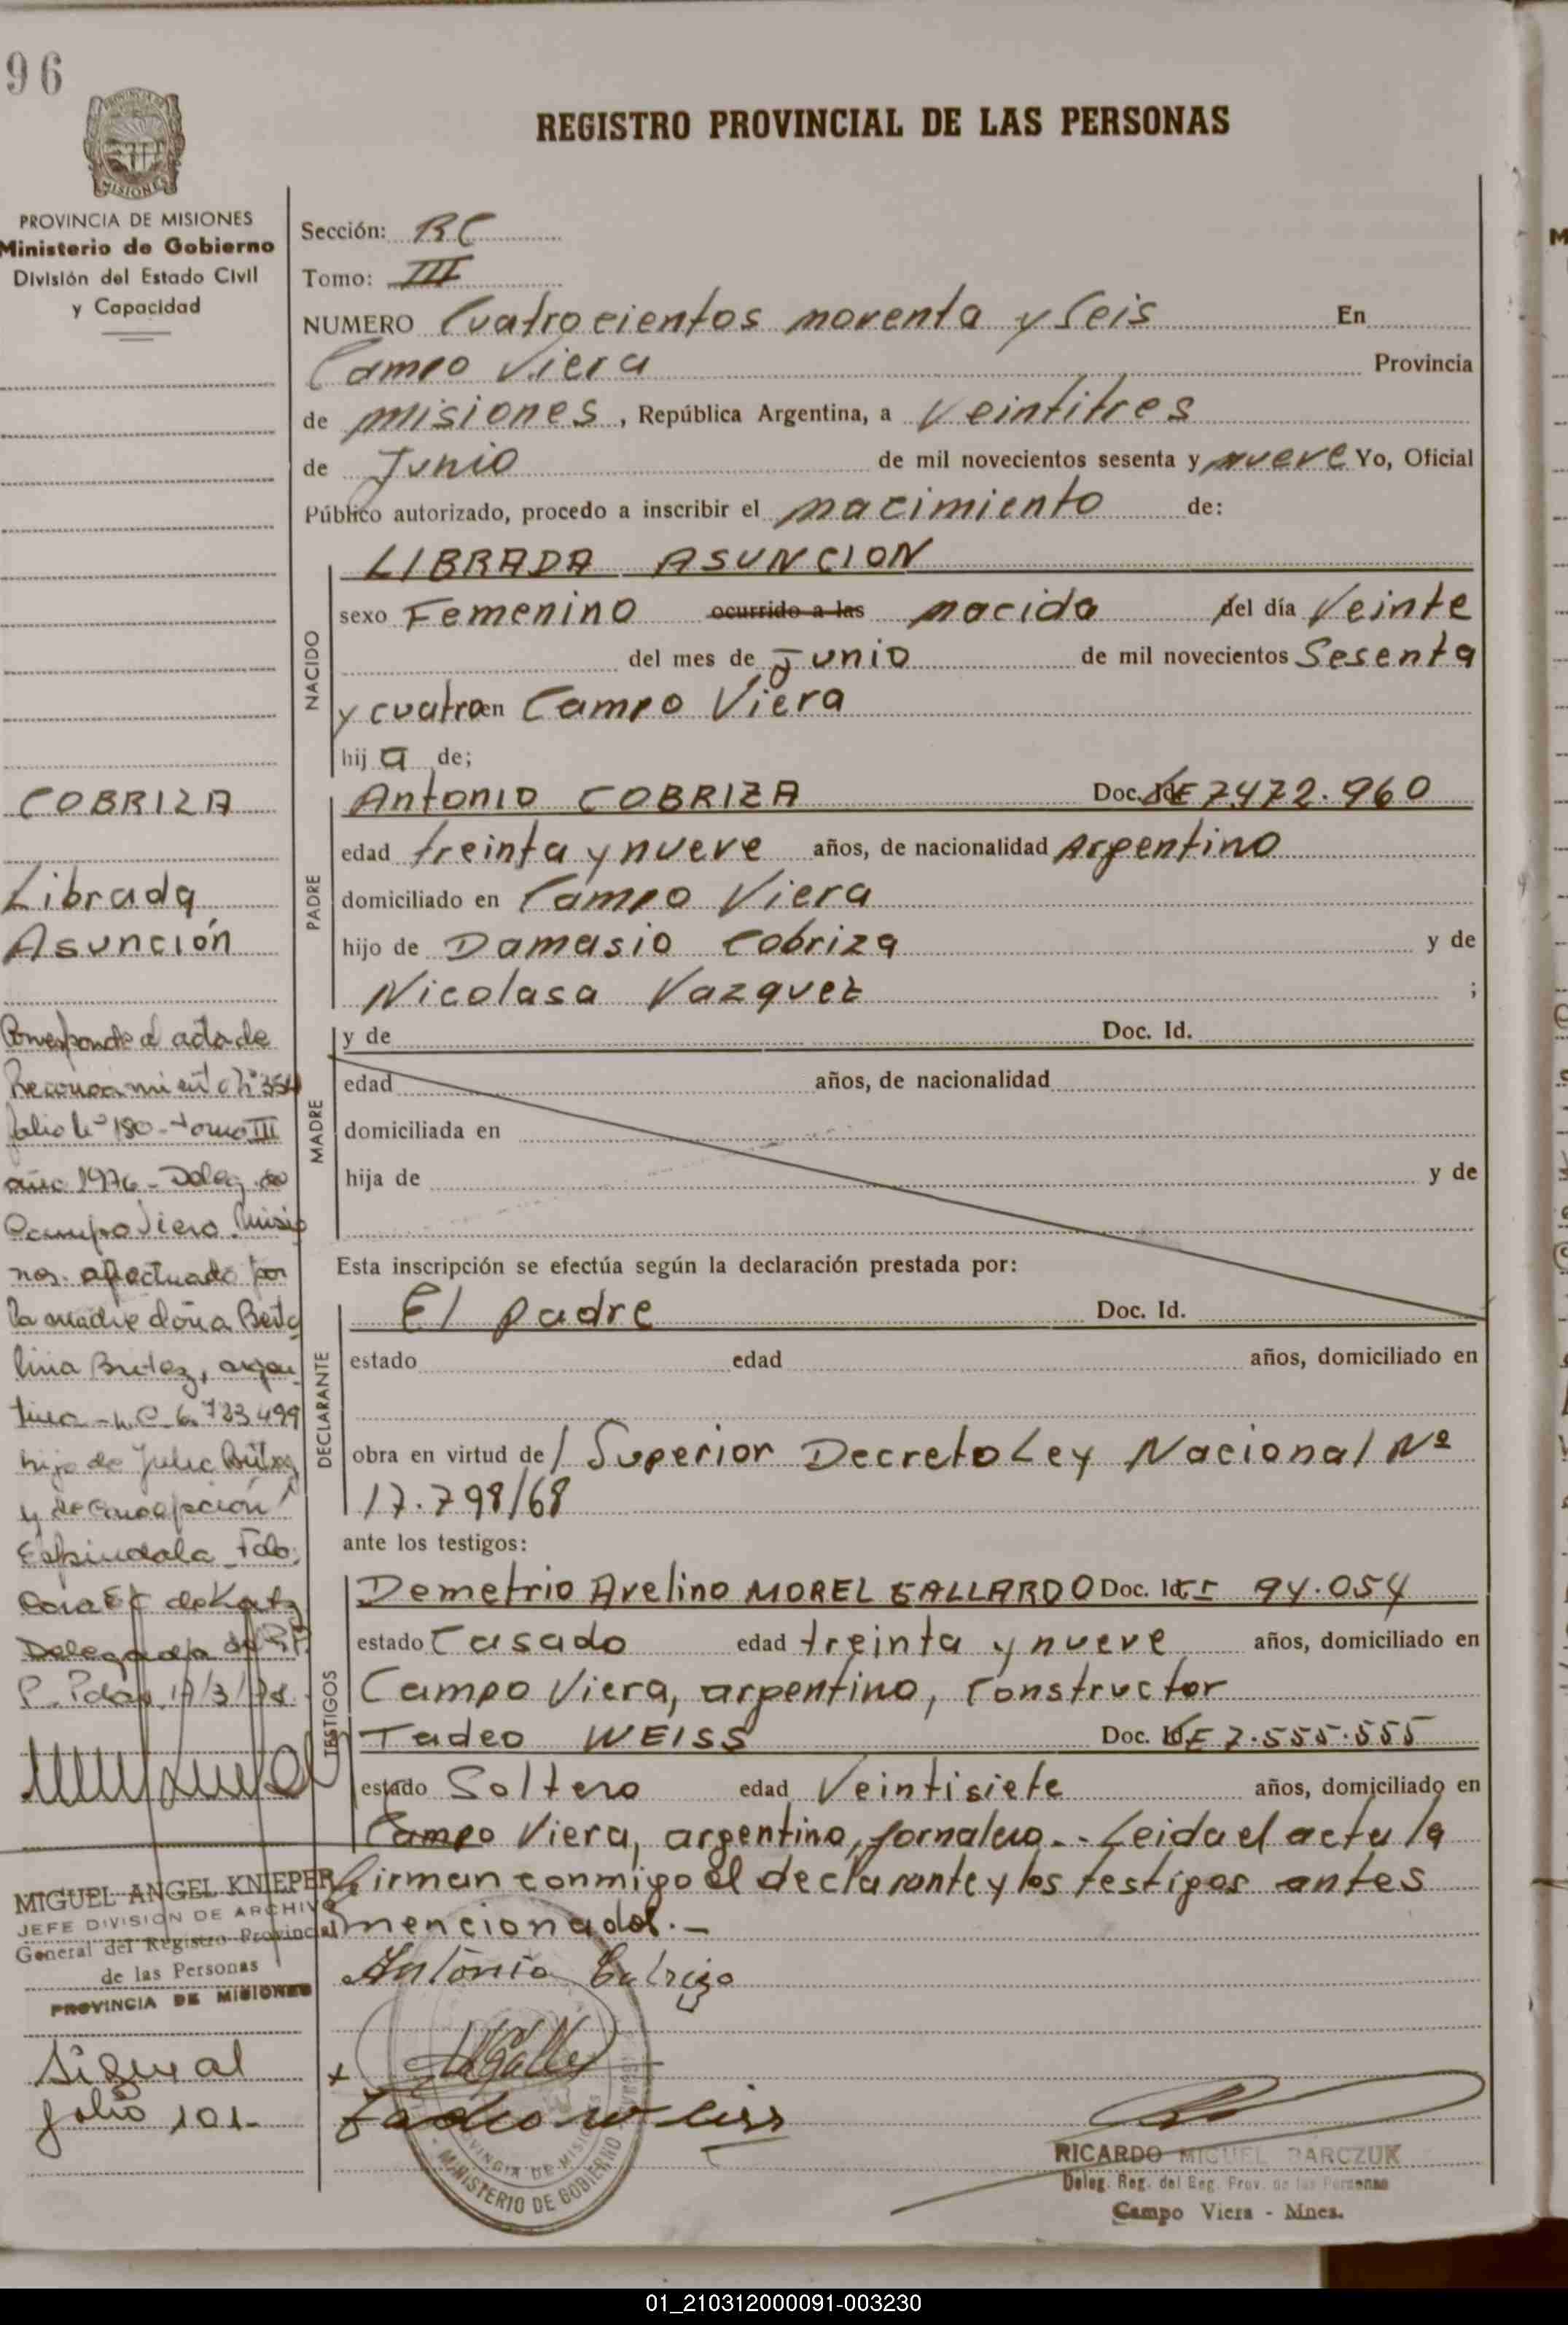 96
MISIONES
PROVINCIA DE MISIONES
Ministerio de Gobierno
División del Estado Civil
y Capacidad
REGISTRO PROVINCIAL DE LAS PERSONAS
Sección: RC
Tomo: III
NUMERO Cuatrocientos noventa y Seis En
Campo Viera Provincia
de Misiones, República Argentina, a Veintitres
de Junio de mil novecientos sesenta y nueve Yo, Oficial
Público autorizado, procedo a inscribir el nacimiento de:
LIBRADA ASUNCION
NACIDO
sexo Femenino ocurrido a las nacida del día Veinte
del mes de Junio de mil novecientos Sesenta
y cuatro en Campo Viera
hij a de;
COBRIZA
Librada
Asunción
PADRE
Antonio COBRIZA Doc. Id. LE 7472.960
edad treinta y nueve años, de nacionalidad Argentino
domiciliado en Campo Viera
hijo de Damasio Cobriza y de
Nicolasa Vazquez ;
MADRE
y de Doc. Id.
edad años, de nacionalidad
domiciliada en
hija de y de
Esta inscripción se efectúa según la declaración prestada por:
DECLARANTE
El padre Doc. Id.
estado edad años, domiciliado en
obra en virtud de l Superior Decreto Ley Nacional Nº
17.798/68
ante los testigos:
TESTIGOS
Demetrio Avelino MOREL GALLARDO Doc. Id. 94.054
estado Casado edad treinta y nueve años, domiciliado en
Campo Viera, argentino, Constructor
Tadeo WEISS Doc. Id. LE 7.555.555
estado Soltero edad Veintisiete años, domiciliado en
Campo Viera, argentino, jornalero.- Leida el acta la
firman conmigo el declarante y los testigos antes
mencionados.-
Antonio Cobriza
Tadeo Weiss
PROVINCIA DE MISIONES
MINISTERIO DE GOBIERNO
RICARDO MIGUEL BARCZUK
Deleg. Reg. del Reg. Prov. de las Personas
Campo Viera - Mnes.
Corresponde al acta de
Reconocimiento Nº 354
folio Nº 180 - tomo III
año 1976 - Deleg. de
Campo Viera. Misio
nes. efectuado por
la madre doña Berta
lina Britez, argen
tina - L.C. 6.723.499
hija de Julio Britez
y de Concepción
Espindola - Fdo.
de Katz
Delegada
P. Pdas, 17/3/78.
MIGUEL ANGEL KNIEPER
JEFE DIVISION DE ARCHIVO
General del Registro Provincial
de las Personas
PROVINCIA DE MISIONES
Sigue al
folio 101-
01_210312000091-003230